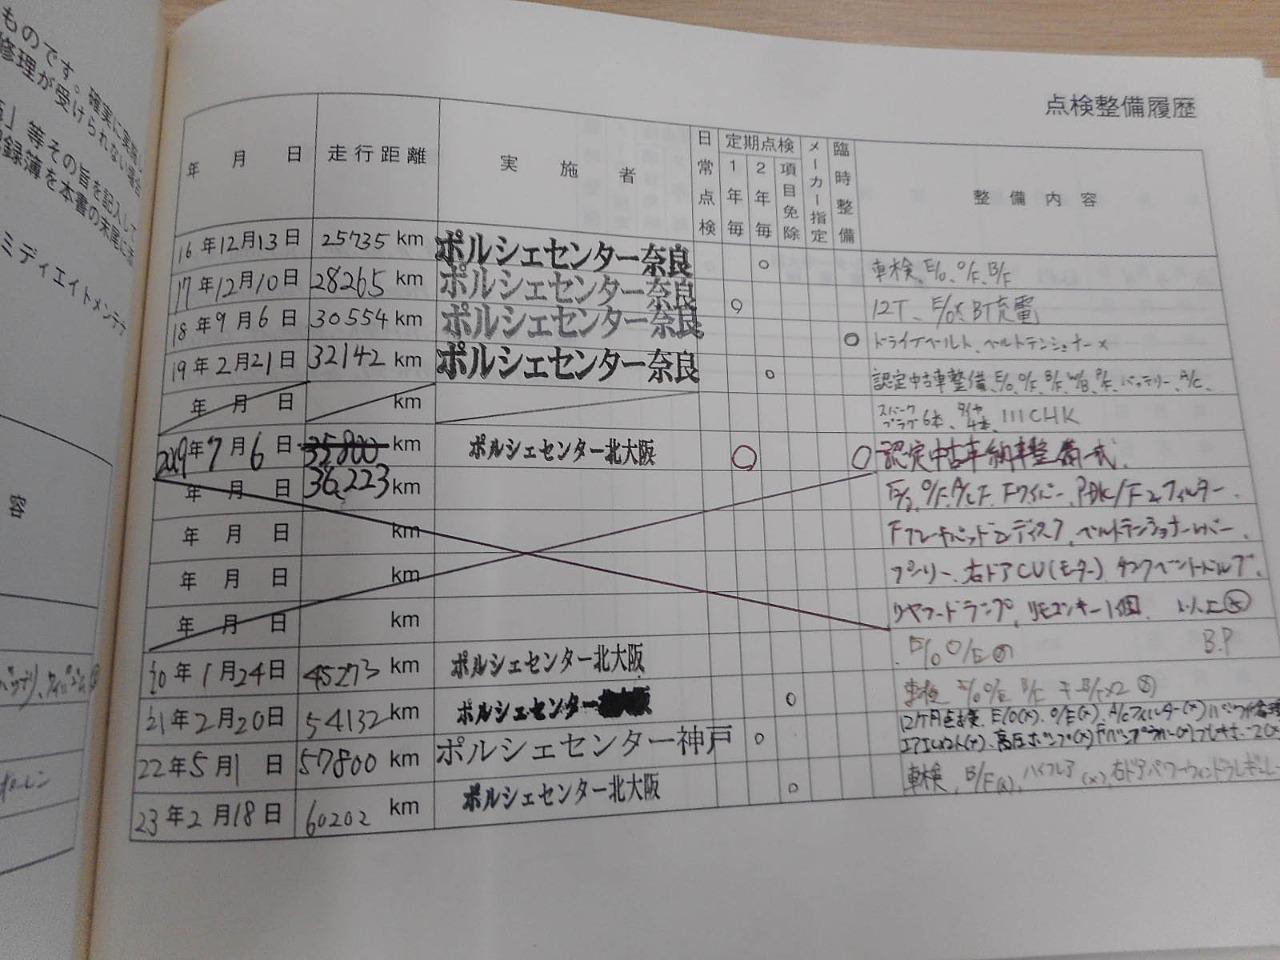 ものです。確実に実施し
修理が受けられない場合
」等その旨を記入して
録簿を本書の末尾に
ミディエイトメンテナ
容
点検整備履歴
年 月 日 走行距離 実施者 日常点検 定期点検 1年毎 2年毎 項目免除 メーカー指定 臨時整備 整備内容
16年12月13日 25735 km ポルシェセンター奈良 ○ 車検、E/O、O/F、B/F
17年12月10日 28265 km ポルシェセンター奈良 ○ 12T、E/O BT充電
18年9月6日 30554 km ポルシェセンター奈良 ○ ドライブベルト、ベルトテンショナー x
19年2月21日 32142 km ポルシェセンター奈良 ○ 認定中古車整備、E/O、O/F、B/F、W/B、P/F、バッテリー、A/C、
年 月 日 km スパークプラグ6本、タイヤ4本、111CHK
2019年7月6日 35800 km ポルシェセンター北大阪 ○ ○ 認定中古車納車整備一式、
年 月 日 36,223 km E/O、O/F、A/C F、Fワイパー、PDK/F & フィルター、
年 月 日 km Fブレーキパッド & ディスク、ベルトテンショナーレバー、
年 月 日 km プーリー、右ドアCU(モーター)、タンクベントバルブ、
年 月 日 km リヤフードランプ、リモコンキー1個 以上
B.P
20年1月24日 45273 km ポルシェセンター北大阪 E/O O/E
21年2月20日 54132 km ポルシェセンター ○ 車検 E/O O/E B/F
22年5月1日 57800 km ポルシェセンター神戸 ○ 12ヶ月点検、E/O(x)、O/E(x)、A/Cフィルター(x)
エアエレメント(x)、高圧ポンプ(x)
23年2月18日 60202 km ポルシェセンター北大阪 ○ 車検、B/F(x)、(x)、右ドアパワーウィンドウレギュレー